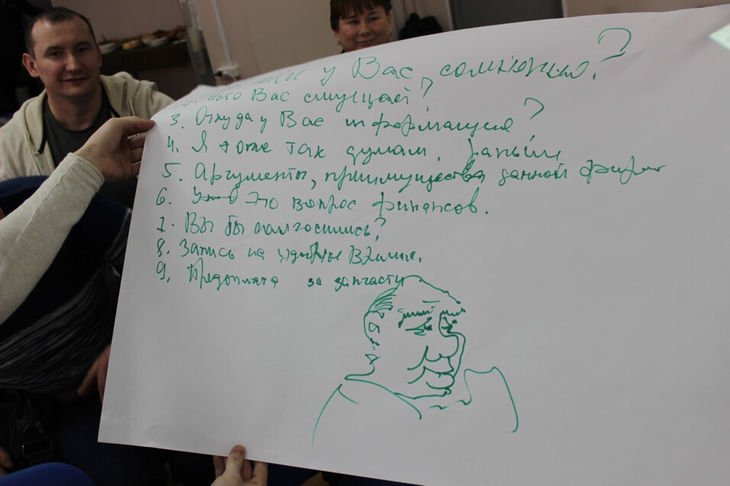 у Вас сомнения?
Вас смущает?
3. Откуда у Вас информация?
4. Я тоже так думал, раньше
5. Аргументы, приимущества данной фирмы
6. Это вопрос финансов.
7. Вы бы согласились?
8. Запись на удобное время.
9. Предоплата за запчасти